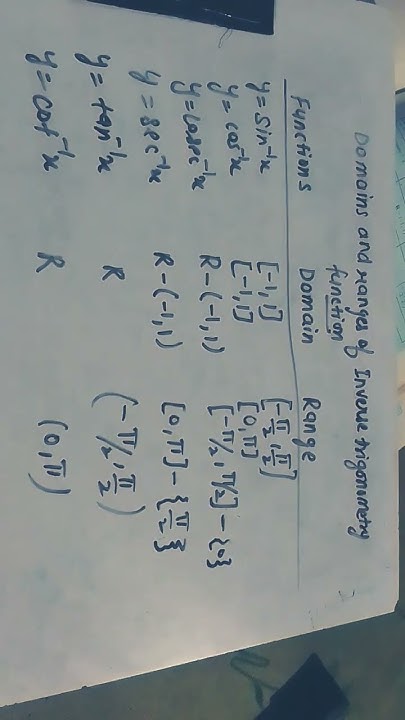 Domains and ranges of Inverse trigonometry
function
Functions Domain Range
y = sin⁻¹x [-1,1] [-π/2, π/2]
y = cos⁻¹x [-1,1] [0,π]
y = cosec⁻¹x R-(-1,1) [-π/2, π/2]-{0}
y = sec⁻¹x R-(-1,1) [0,π]-{π/2}
y = tan⁻¹x R (-π/2, π/2)
y = cot⁻¹x R (0,π)